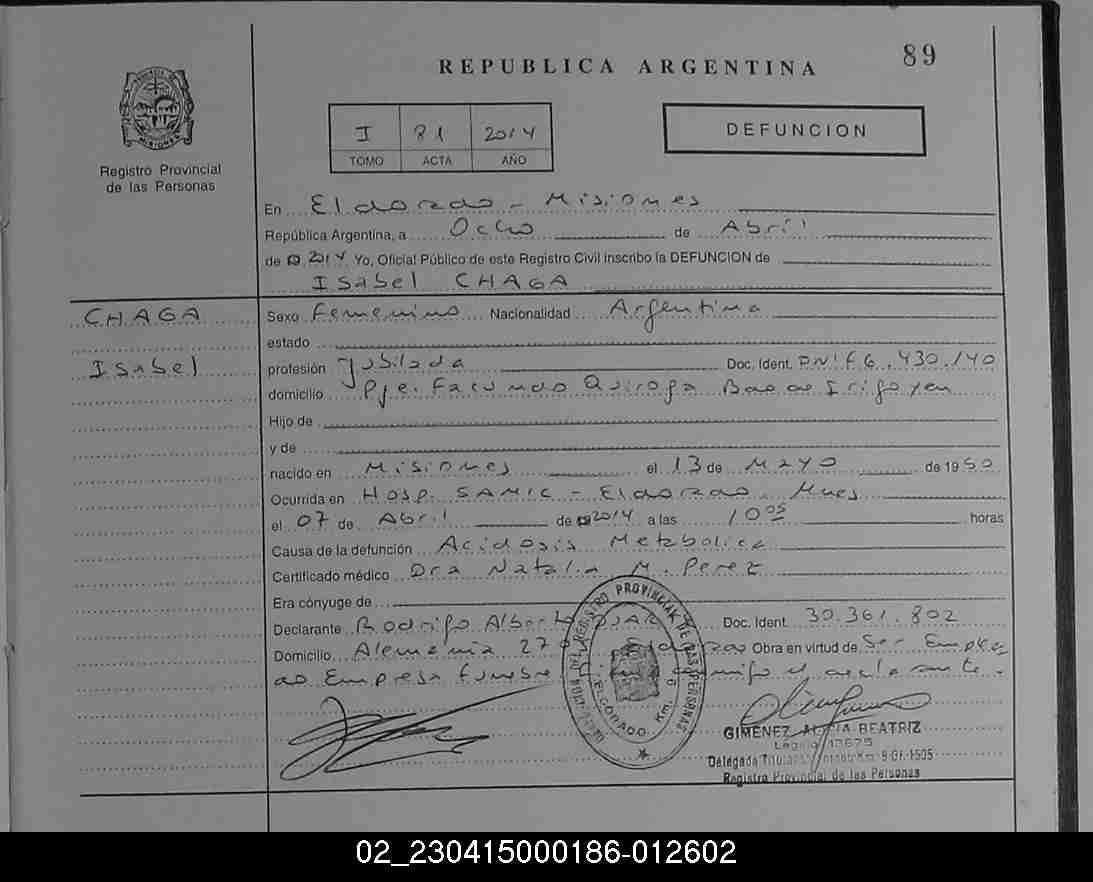 89
REPUBLICA ARGENTINA
MISIONES
Registro Provincial
de las Personas
I 81 2014
TOMO ACTA AÑO
DEFUNCION
En Eldorado - Misiones
República Argentina, a Ocho de Abril
de 2014 Yo, Oficial Público de este Registro Civil inscribo la DEFUNCION de
Isabel CHAGA
CHAGA
Isabel
Sexo Femenino Nacionalidad Argentina
estado
profesión Jubilada Doc. Ident. DNI F 6.430.140
domicilio Pje. Facundo Quiroga Bdo de Irigoyen
Hijo de
y de
nacido en Misiones el 13 de Mayo de 1950
Ocurrida en Hosp. SAMIC - Eldorado Mnes
el 07 de Abril de 2014 a las 10 05 horas
Causa de la defunción Acidosis Metabolica
Certificado médico Dra Natalia M. Perez
Era cónyuge de
Declarante Rodrigo Alberto Doc. Ident. 30.361.802
Domicilio Alemania Eldorado Obra en virtud de Ser Emplea
do Empresa Funebre el acta ante.
REGISTRO PROVINCIAL DE LAS PERSONAS
ELDORADO Km. 9
GIMENEZ ALICIA BEATRIZ
Delegada Titular
Registro Provincial de las Personas
02_230415000186-012602